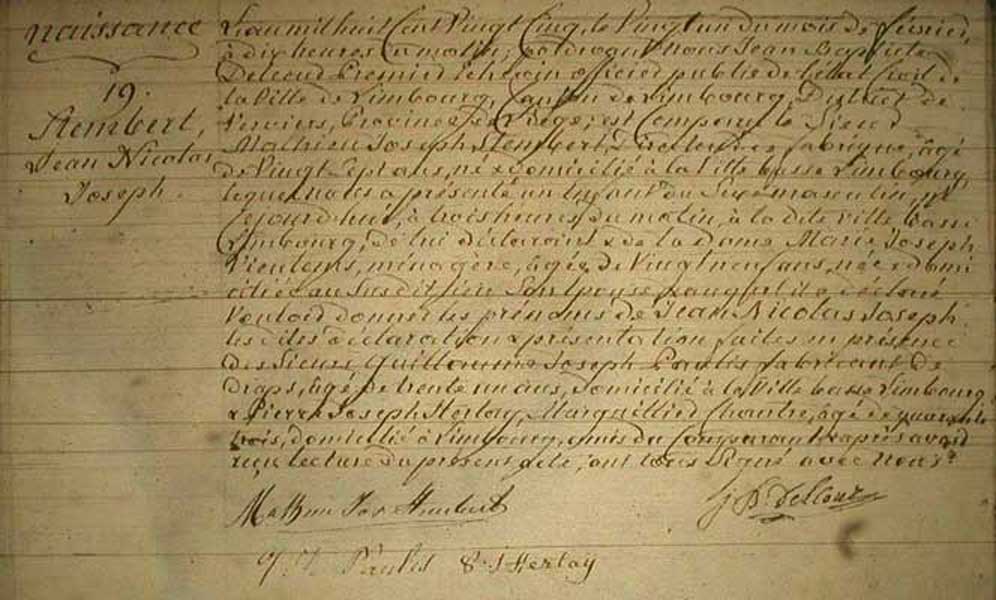 naissance
19.
Stembert,
Jean Nicolas
Joseph
L'an mil huit Cent Vingt Cinq, le Vingt un du mois de février,
à dix heures du matin, pardevant nous Jean Baptiste
Delcour Premier échevin officier public de l'état Civil de
la Ville de Limbourg, Canton de Limbourg, District de
Verviers, Province de Liège; est Comparu le Sieur
Mathieu Joseph Stembert, de fabrique, âgé
de Vingt Sept ans, né & domicilié à la Ville basse Limbourg,
lequel nous a présenté un Enfant du Sexe masculin, né
cejourd'hui, à trois heures du matin, à la dite ville basse
Limbourg, de lui déclarant & de la dame Marie Joseph
ménagère, âgée de Vingt neuf ans, née & domi
ciliée au Susdit lieu Son épouse & auquel il a déclaré
Vouloir donner les prénoms de Jean Nicolas Joseph.
les dites déclaration & présentation faites en présence
des Sieurs Guillaume Joseph Paulis fabricant de
draps, âgé de trente un ans, domicilié à la Ville basse Limbourg
& Pierre Joseph Herlay, Marguillier Chantre, âgé de quarante
trois, domicilié à Limbourg, amis du Comparant & après avoir
reçu lecture du présent acte, ont tous Signé avec Nous.
Mathieu Jos Stembert
J B Delcour
G. J. Paulis
P. J Herlay